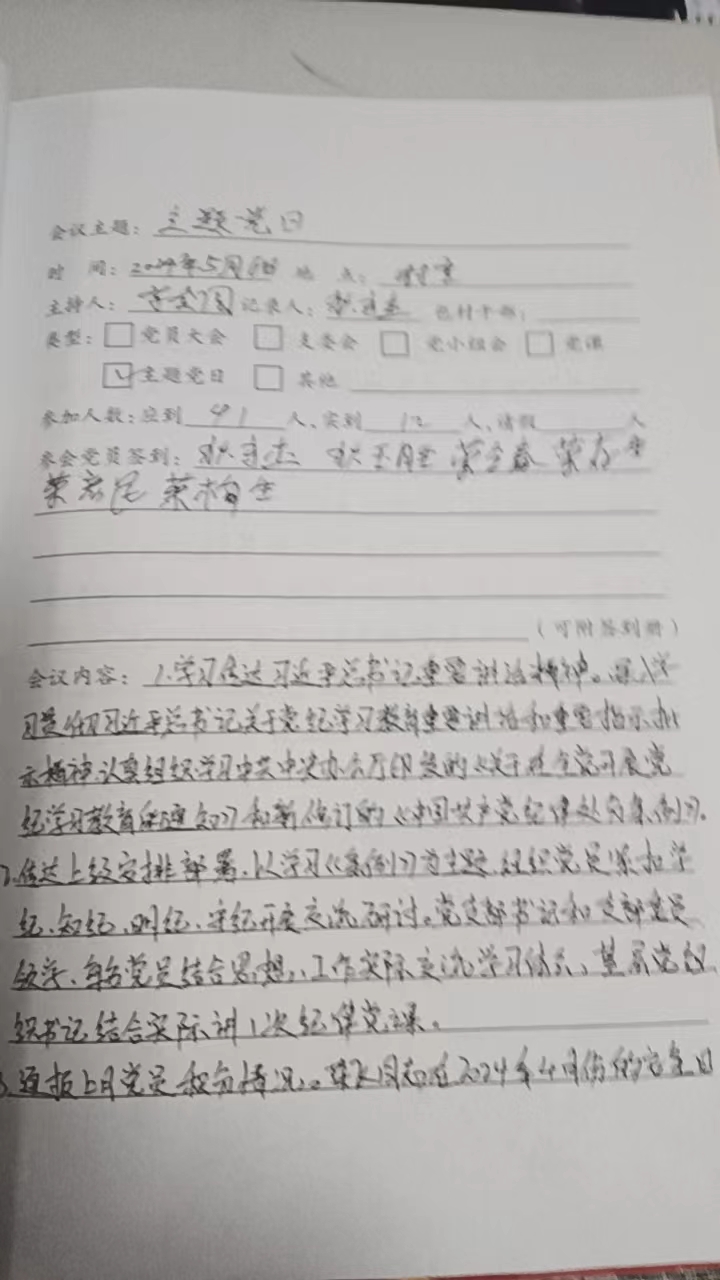 会议主题: 主题党日
时 间: 2024年5月 日 地 点: 村室
主持人: 记录人: 包村干部:
类型: 党员大会 支委会 党小组会 党课
主题党日 其他
参加人数: 应到 41 人、实到 人、请假 人
参会党员签到:
(可附签到册)
会议内容: 1.学习传达习近平总书记重要讲话精神。深入学
习贯彻习近平总书记关于党纪学习教育重要讲话和重要指示批
示精神,认真组织学习中共中央办公厅印发的《关于在全党开展党
纪学习教育的通知》和新修订的《中国共产党纪律处分条例》。
2.传达上级安排部署,以学习《条例》为主题,组织党员紧扣学
纪、知纪、明纪、守纪开展交流研讨。党支部书记和支部委员
领学、每名党员结合思想、工作实际交流学习体会,基层党组
织书记结合实际讲1次纪律党课。
3.通报上月党员积分情况。 同志在2024年4月份的 日